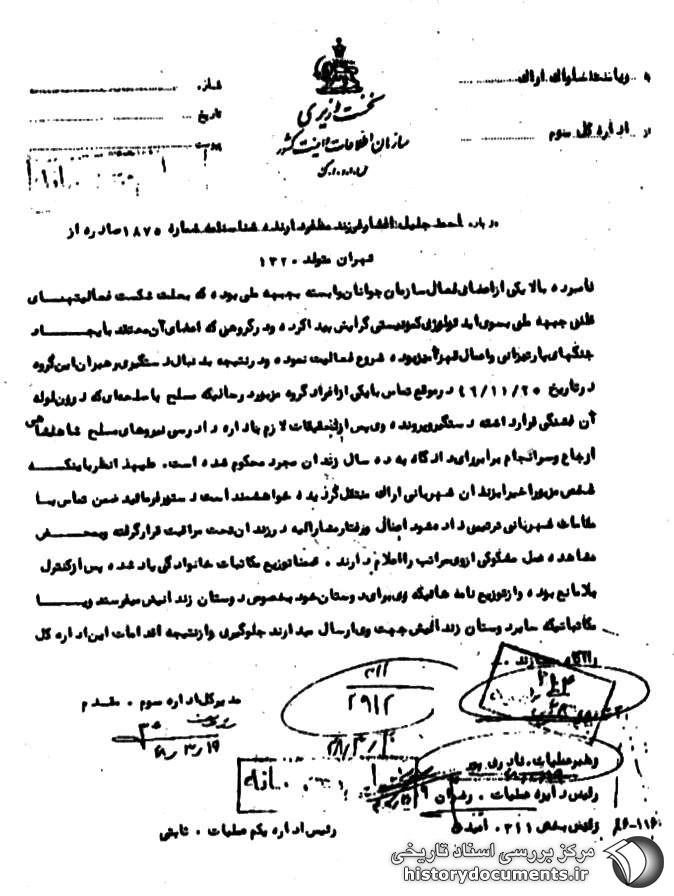 به ریاست ساواک اراک
از اداره کل سوم
نخست وزیری
سازمان اطلاعات و امنیت کشور
س.ا.و.ا.ک
شماره
تاریخ
پیوست
درباره احمد جلیل افشار فرزند مظفر دارنده شناسنامه شماره ۱۸۷۵ صادره از
تهران متولد ۱۳۲۰
نامبرده بالا یکی از اعضای فعال سازمان جوانان وابسته بجبهه ملی بوده که بعلت شکست فعالیتهای
علنی جبهه ملی بسوی ایدئولوژی کمونیستی گرایش پیدا کرده و در گروهی که اعضای آن معتقد بایجاد
جنگهای پارتیزانی و اعمال قهرآمیز بوده شروع فعالیت نموده و در نتیجه بدنبال دستگیری رهبران این گروه
در تاریخ ۴۶/۱۱/۲۵ در موقع تماس با یکی از افراد گروه مزبور در حالیکه مسلح با سلحه‌ای که درون لوله
آن فشنگی قرار داشته دستگیر و پرونده وی پس از تحقیقات لازم باداره دادرسی نیروهای مسلح شاهنشاهی
ارجاع و سرانجام برابر رای دادگاه به ده سال زندان مجرد محکوم شده است. علیهذا نظر باینکه
شخص مزبور اخیرا بزندان شهربانی اراک منتقل گردیده خواهشمند است دستور فرمائید ضمن تماس با
مقامات شهربانی ترتیبی داده شود اعمال و رفتار مشارالیه در زندان تحت مراقبت قرار گرفته و بمحض
مشاهده عمل مشکوکی از وی مراتب را اعلام دارند. ضمنا توزیع مکاتبات خانوادگی یاد شده پس از کنترل
بلامانع بوده و از توزیع نامه هائیکه وی برای دوستان خود بخصوص دوستان زندانیش میفرستد و یا
مکاتباتیکه سایر دوستان زندانیش جهت وی ارسال میدارند جلوگیری و از نتیجه اقدامات این اداره کل
را آگاه سازند.
مدیر کل اداره سوم . مقدم
۳۱۱
۲۹۱۲
۴۸/۳/۱۹
رهبر عملیات . نادری پور
رئیس دایره عملیات . رضوان
رئیس بخش ۳۱۱ .
رئیس اداره یکم عملیات . ثابتی
مرکز بررسی اسناد تاریخی
historydocuments.ir